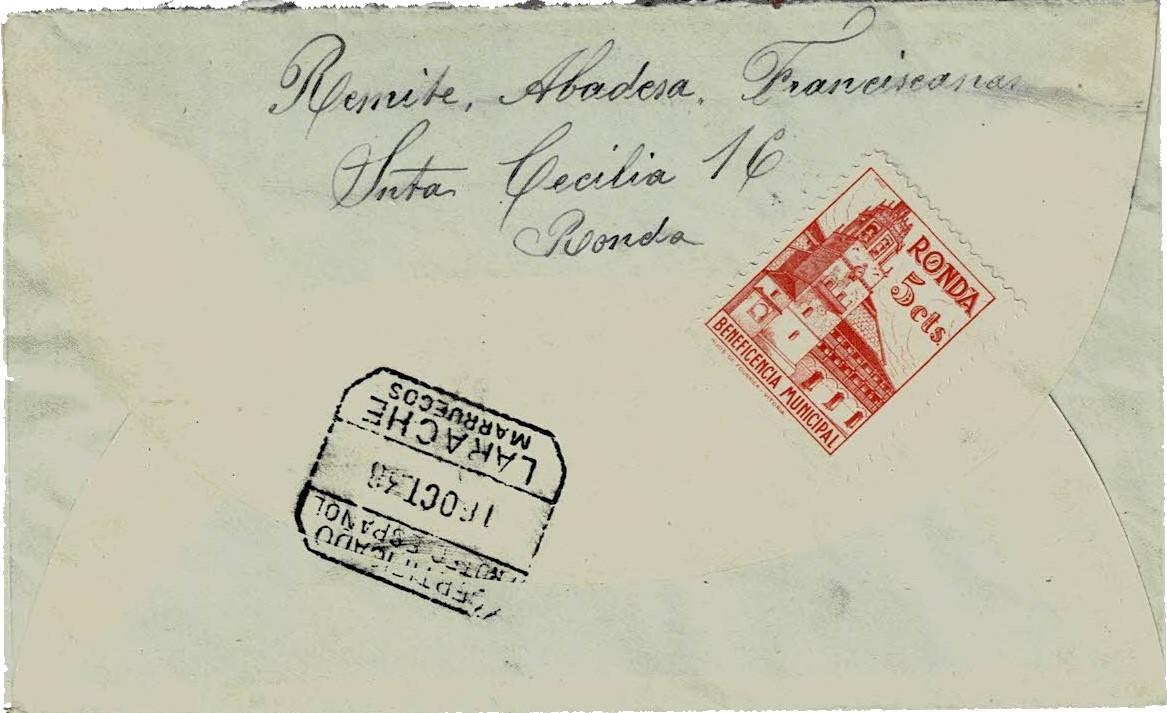 Remite, Abadesa, Franciscanas
Snta Cecilia 16
Ronda
RONDA
5 cts.
BENEFICENCIA MUNICIPAL
LARACHE
MARRUECOS
16 OCT. 38
ESPAÑOL
CERTIFICADO